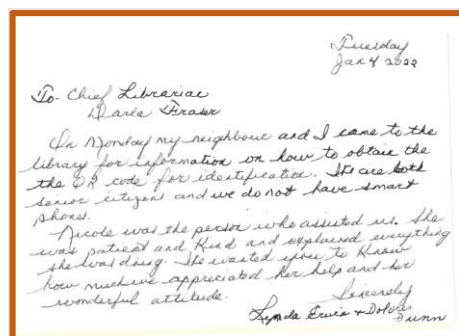 Tuesday
Jan 4 2022
To- Chief Librariac
Darla Fraser
On Monday my neighbour and I came to the
library for information on how to obtain the
the QR code for identification. We are both
senior citizens and we do not have smart
phones.
Nicole was the person who assisted us. She
was patient and kind and explained everything
she was doing. We wanted you to know
how much we appreciated her help and her
wonderful attitude.
Sincerely
Lynda Erwin + Dolores
Dunn